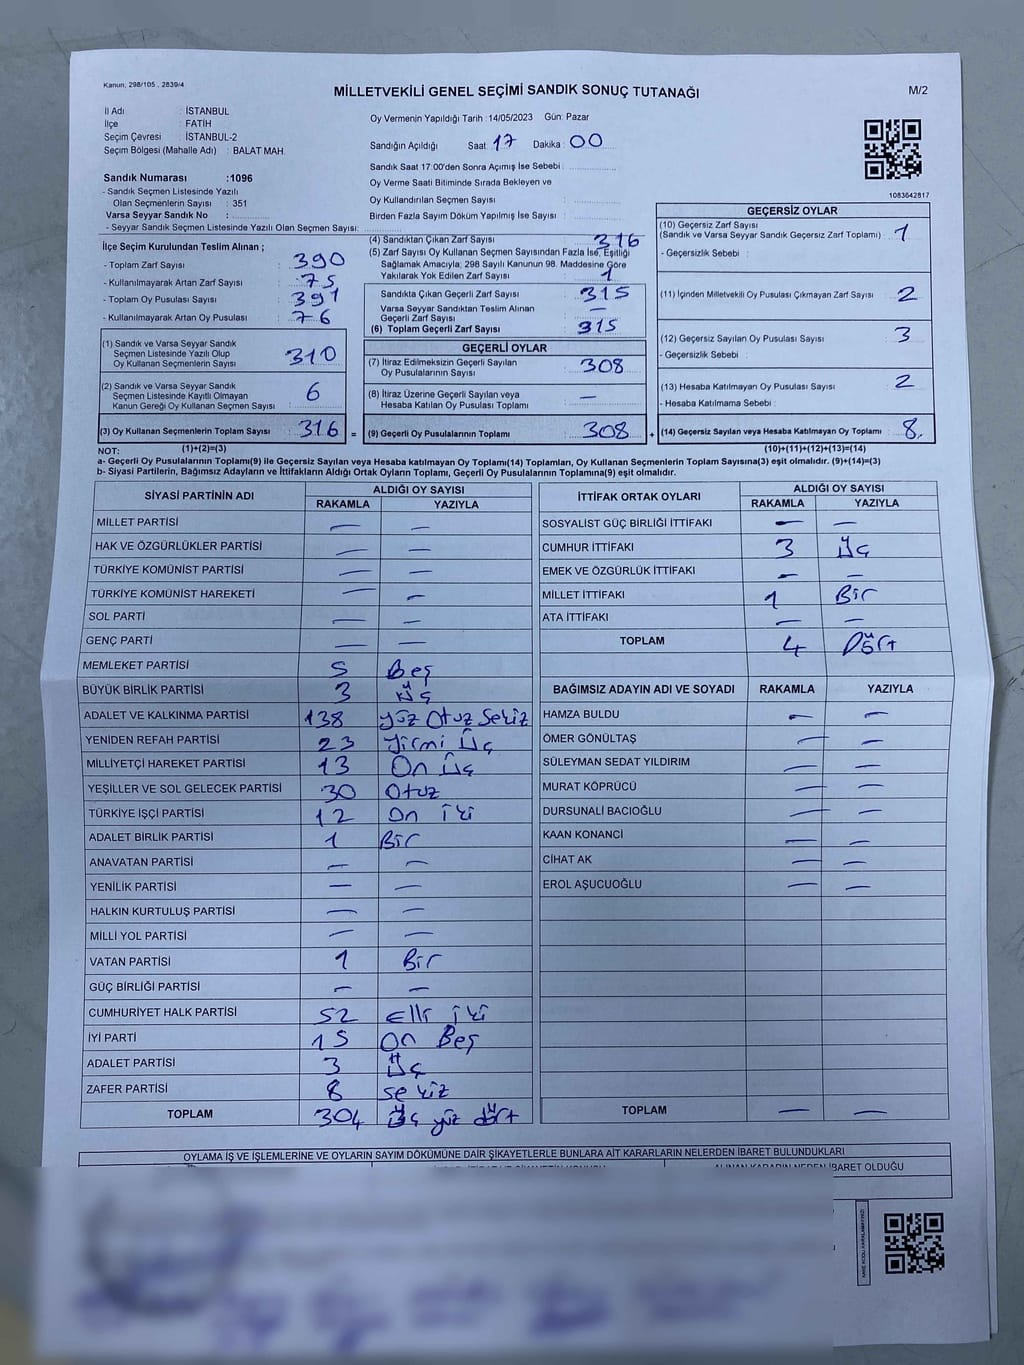 Kanun, 298/105 , 2839/4
MİLLETVEKİLİ GENEL SEÇİMİ SANDIK SONUÇ TUTANAĞI
M/2
İl Adı : İSTANBUL
İlçe : FATİH
Seçim Çevresi : İSTANBUL-2
Seçim Bölgesi (Mahalle Adı) : BALAT MAH.
Sandık Numarası :1096
- Sandık Seçmen Listesinde Yazılı
Olan Seçmenlerin Sayısı : 351
Varsa Seyyar Sandık No :
- Seyyar Sandık Seçmen Listesinde Yazılı Olan Seçmen Sayısı:
Oy Vermenin Yapıldığı Tarih :14/05/2023 Gün: Pazar
Sandığın Açıldığı Saat 17 Dakika : 00
Sandık Saat 17:00'den Sonra Açımış İse Sebebi :
Oy Verme Saati Bitiminde Sırada Bekleyen ve
Oy Kullandırılan Seçmen Sayısı :
Birden Fazla Sayım Döküm Yapılmış İse Sayısı :
1083642817
İlçe Seçim Kurulundan Teslim Alınan ;
- Toplam Zarf Sayısı : 390
- Kullanılmayarak Artan Zarf Sayısı : 75
- Toplam Oy Pusulası Sayısı : 391
- Kullanılmayarak Artan Oy Pusulası : 76
(1) Sandık ve Varsa Seyyar Sandık
Seçmen Listesinde Yazılı Olup
Oy Kullanan Seçmenlerin Sayısı : 310
(2) Sandık ve Varsa Seyyar Sandık
Seçmen Listesinde Kayıtlı Olmayan
Kanun Gereği Oy Kullanan Seçmen Sayısı : 6
(3) Oy Kullanan Seçmenlerin Toplam Sayısı : 316
(4) Sandıktan Çıkan Zarf Sayısı : 316
(5) Zarf Sayısı Oy Kullanan Seçmen Sayısından Fazla İse, Eşitliği
Sağlamak Amacıyla; 298 Sayılı Kanunun 98. Maddesine Göre
Yakılarak Yok Edilen Zarf Sayısı : 1
Sandıkta Çıkan Geçerli Zarf Sayısı : 315
Varsa Seyyar Sandıktan Teslim Alınan
Geçerli Zarf Sayısı : —
(6) Toplam Geçerli Zarf Sayısı : 315
GEÇERLİ OYLAR
(7) İtiraz Edilmeksizin Geçerli Sayılan
Oy Pusulalarının Sayısı : 308
(8) İtiraz Üzerine Geçerli Sayılan veya
Hesaba Katılan Oy Pusulası Toplamı : —
= (9) Geçerli Oy Pusulalarının Toplamı : 308 +
GEÇERSİZ OYLAR
(10) Geçersiz Zarf Sayısı
(Sandık ve Varsa Seyyar Sandık Geçersiz Zarf Toplamı) : 1
- Geçersizlik Sebebi :
(11) İçinden Milletvekili Oy Pusulası Çıkmayan Zarf Sayısı : 2
(12) Geçersiz Sayılan Oy Pusulası Sayısı : 3
- Geçersizlik Sebebi :
(13) Hesaba Katılmayan Oy Pusulası Sayısı : 2
- Hesaba Katılmama Sebebi :
(14) Geçersiz Sayılan veya Hesaba Katılmayan Oy Toplamı : 8
NOT: (1)+(2)=(3) (10)+(11)+(12)+(13)=(14)
a- Geçerli Oy Pusulalarının Toplamı(9) ile Geçersiz Sayılan veya Hesaba katılmayan Oy Toplamı(14) Toplamları, Oy Kullanan Seçmenlerin Toplam Sayısına(3) eşit olmalıdır. (9)+(14)=(3)
b- Siyasi Partilerin, Bağımsız Adayların ve İttifakların Aldığı Ortak Oyların Toplamı, Geçerli Oy Pusulalarının Toplamına(9) eşit olmalıdır.
SİYASİ PARTİNİN ADI ALDIĞI OY SAYISI
RAKAMLA YAZIYLA
MİLLET PARTİSİ — —
HAK VE ÖZGÜRLÜKLER PARTİSİ — —
TÜRKİYE KOMÜNİST PARTİSİ — —
TÜRKİYE KOMÜNİST HAREKETİ — —
SOL PARTİ — —
GENÇ PARTİ — —
MEMLEKET PARTİSİ 5 Beş
BÜYÜK BİRLİK PARTİSİ 3 Üç
ADALET VE KALKINMA PARTİSİ 138 yüz Otuz Sekiz
YENİDEN REFAH PARTİSİ 23 yirmi Üç
MİLLİYETÇİ HAREKET PARTİSİ 13 On Üç
YEŞİLLER VE SOL GELECEK PARTİSİ 30 Otuz
TÜRKİYE İŞÇİ PARTİSİ 12 On iki
ADALET BİRLİK PARTİSİ 1 Bir
ANAVATAN PARTİSİ — —
YENİLİK PARTİSİ — —
HALKIN KURTULUŞ PARTİSİ — —
MİLLİ YOL PARTİSİ — —
VATAN PARTİSİ 1 Bir
GÜÇ BİRLİĞİ PARTİSİ — —
CUMHURİYET HALK PARTİSİ 52 Elli iki
İYİ PARTİ 15 On Beş
ADALET PARTİSİ 3 Üç
ZAFER PARTİSİ 8 sekiz
TOPLAM 304 Üç yüz dört
İTTİFAK ORTAK OYLARI ALDIĞI OY SAYISI
RAKAMLA YAZIYLA
SOSYALIST GÜÇ BİRLİĞİ İTTİFAKI — —
CUMHUR İTTİFAKI 3 Üç
EMEK VE ÖZGÜRLÜK İTTİFAKI — —
MİLLET İTTİFAKI 1 Bir
ATA İTTİFAKI — —
TOPLAM 4 Dört
BAĞIMSIZ ADAYIN ADI VE SOYADI RAKAMLA YAZIYLA
HAMZA BULDU — —
ÖMER GÖNÜLTAŞ — —
SÜLEYMAN SEDAT YILDIRIM — —
MURAT KÖPRÜCÜ — —
DURSUNALİ BACIOĞLU — —
KAAN KONANCİ — —
CİHAT AK — —
EROL AŞUCUOĞLU — —
TOPLAM — —
OYLAMA İŞ VE İŞLEMLERİNE VE OYLARIN SAYIM DÖKÜMÜNE DAİR ŞİKAYETLERLE BUNLARA AİT KARARLARIN NELERDEN İBARET BULUNDUKLARI
ALINAN KARARIN NEDEN İBARET OLDUĞU